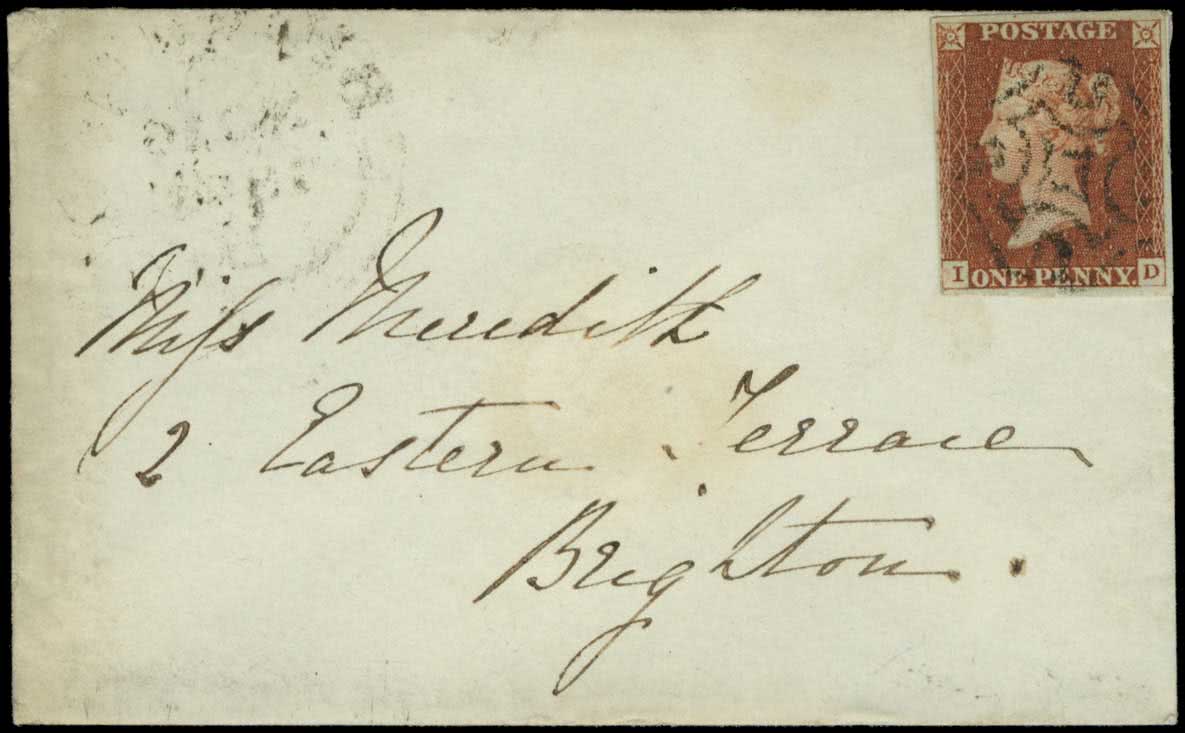 POSTAGE
I ONE PENNY. D
Miss Meredith
2 Eastern Terrace
Brighton.